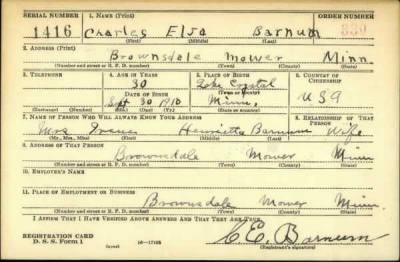 SERIAL NUMBER 1. NAME (Print) ORDER NUMBER
1416 Charles Elsa Barnum 880
(First) (Middle) (Last)
2. ADDRESS (Print)
Brownsdale Mower Minn
(Number and street or R. F. D. number) (Town) (County) (State)
3. TELEPHONE 4. AGE IN YEARS 5. PLACE OF BIRTH 6. COUNTRY OF CITIZENSHIP
30 Lake Crystal
DATE OF BIRTH (Town or County)
Sept 30 1910 Minn. USA
(Exchange) (Number) (Mo.) (Day) (Yr.) (State or country)
7. NAME OF PERSON WHO WILL ALWAYS KNOW YOUR ADDRESS 8. RELATIONSHIP OF THAT PERSON
Mrs Henrietta Barnum Wife
(Mr., Mrs., Miss) (First) (Middle) (Last)
9. ADDRESS OF THAT PERSON
Brownsdale Mower Minn
(Number and street or R. F. D. number) (Town) (County) (State)
10. EMPLOYER'S NAME
11. PLACE OF EMPLOYMENT OR BUSINESS
Brownsdale Mower Minn.
(Number and street or R. F. D. number) (Town) (County) (State)
I AFFIRM THAT I HAVE VERIFIED ABOVE ANSWERS AND THAT THEY ARE TRUE.
REGISTRATION CARD
D. S. S. Form 1 16—17105 C E. Barnum
(Registrant's signature)